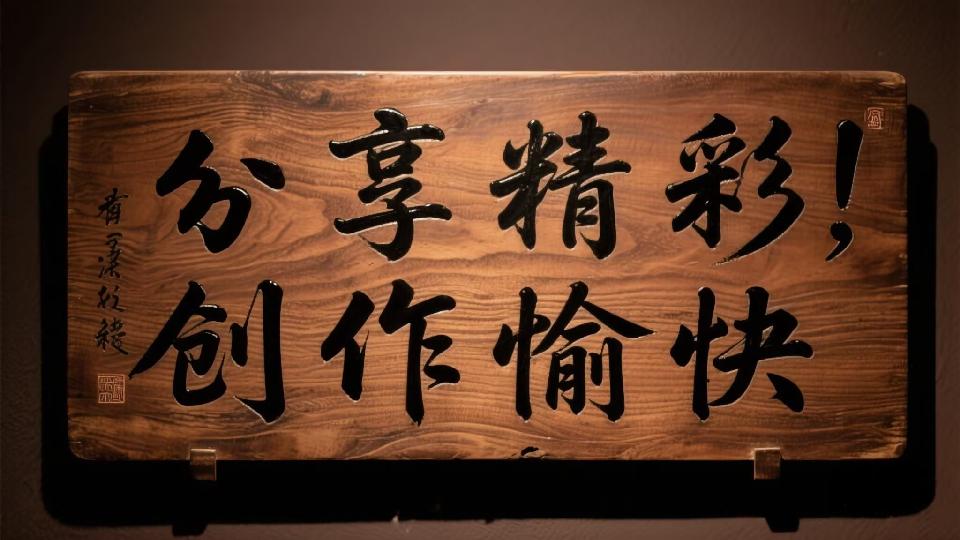 分享精彩!
创作愉快